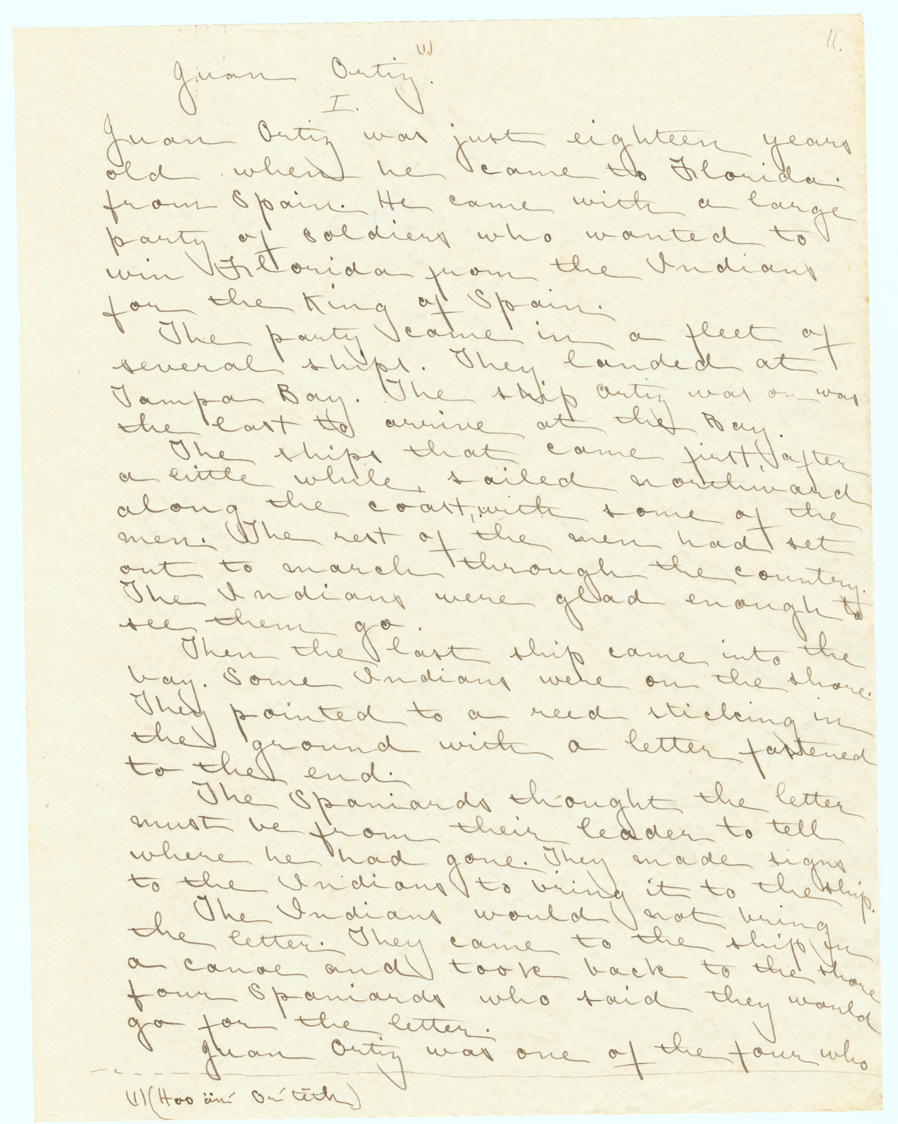 11.
Juan Ortiz.(1)
I.
Juan Ortiz was just eighteen years
old when he came to Florida
from Spain. He came with a large
party of soldiers who wanted to
win Florida from the Indians
for the King of Spain.
The party came in a fleet of
several ships. They landed at
Tampa Bay. The ship Ortiz was on was
the last to arrive at the Bay.
The ships that came first, after
a little while, sailed northward
along the coast, with some of the
men. The rest of the men had set
out to march through the country.
The Indians were glad enough to
see them go.
Then the last ship came into the
bay. Some Indians were on the shore.
They pointed to a reed sticking in
the ground with a letter fastened
to the end.
The Spaniards thought the letter
must be from their leader to tell
where he had gone. They made signs
to the Indians to bring it to the ship.
The Indians would not bring
the letter. They came to the ship in
a canoe and took back to the shore
four Spaniards who said they would
go for the letter.
Juan Ortiz was one of the four who
(1) (Hoo än' Or' tēth)